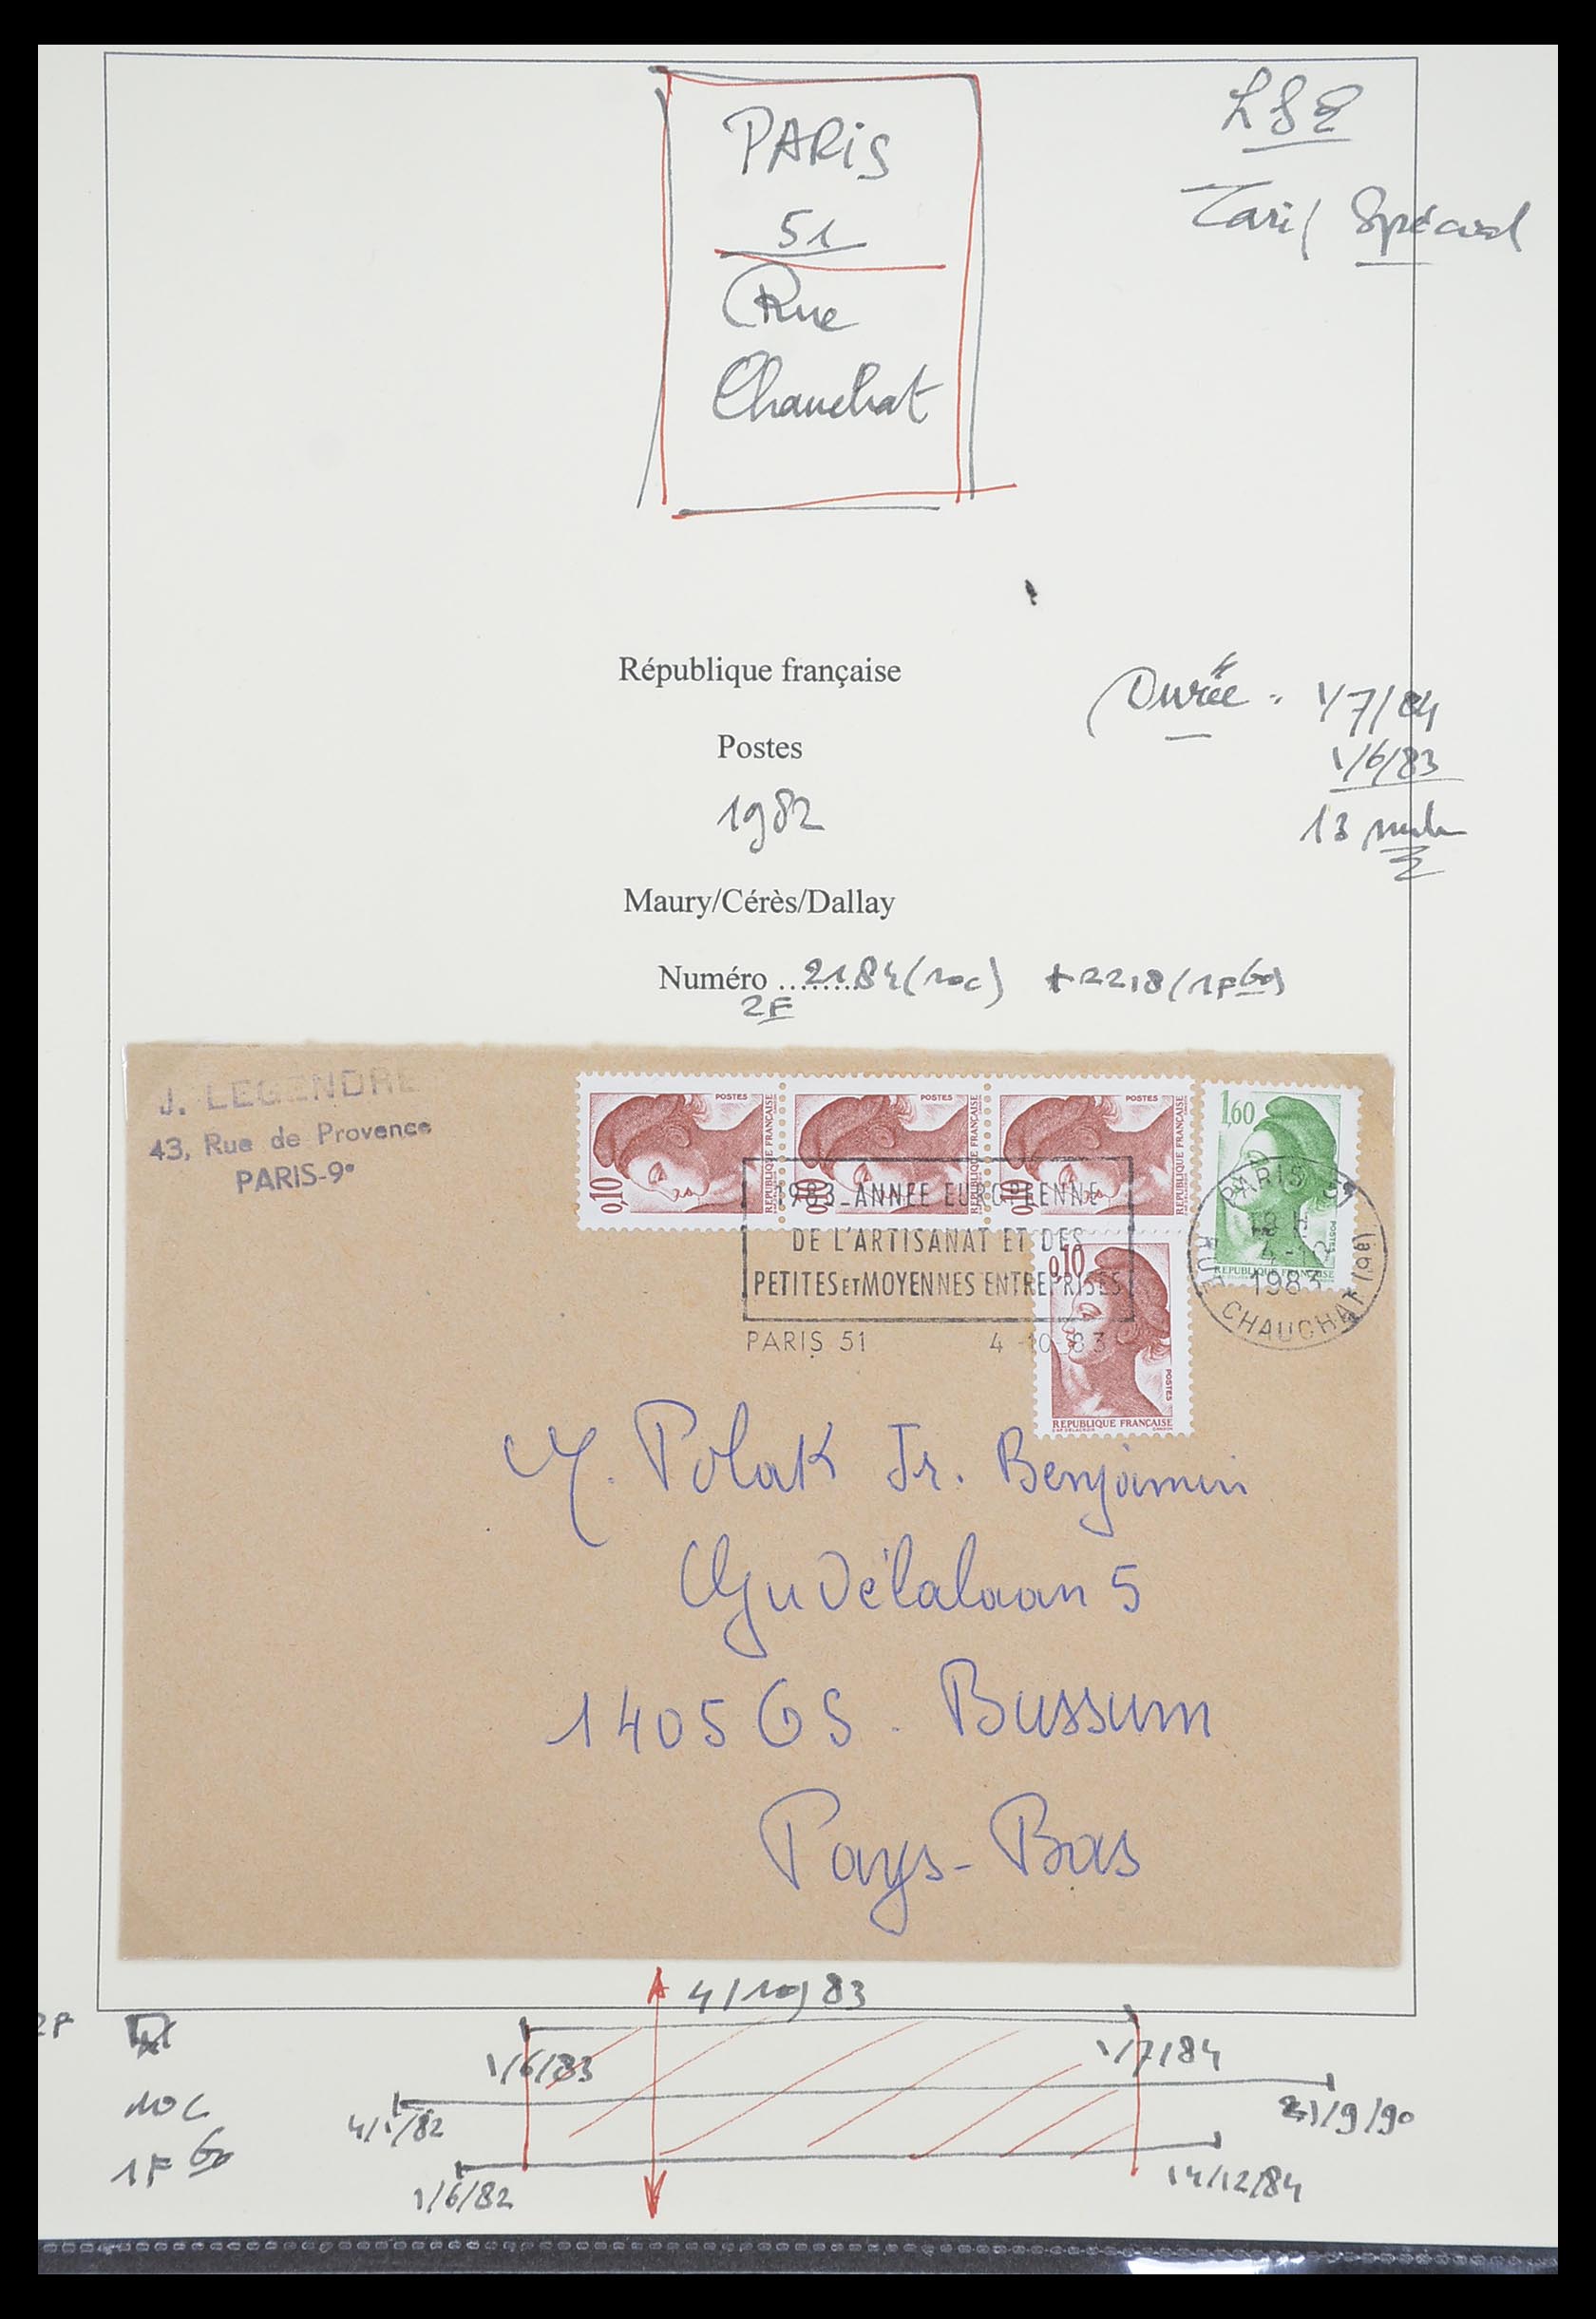 PARIS
51
Rue
Chauchat
LSE
Tarif Spécial
République française
Postes
1982
Durée = 1/7/84
1/6/83
13 mois
Maury/Cérès/Dallay
Numéro ........ 2184 (10c) + 2218 (1F60)
2F
J. LEGENDRE
43, Rue de Provence
PARIS-9e
0,10 POSTES RÉPUBLIQUE FRANÇAISE
0,10 POSTES RÉPUBLIQUE FRANÇAISE
0,10 POSTES RÉPUBLIQUE FRANÇAISE
1,60
POSTES
REPUBLIQUE
1983_ANNEE EUROPEENNE
DE L'ARTISANAT ET DES
PETITES ET MOYENNES ENTREPRISES
PARIS 51 4-10-83
PARIS 51
18 H
4-10
1983
RUE CHAUCHAT (9e)
0,10
POSTES
REPUBLIQUE FRANÇAISE
M. Polak Jr. Benjamin
5
1405 GS. Bussum
Pays-Bas
4/10/83
2F
1/6/83 1/7/84
10c
4/1/82 /9/90
1F60
1/6/82 14/12/84